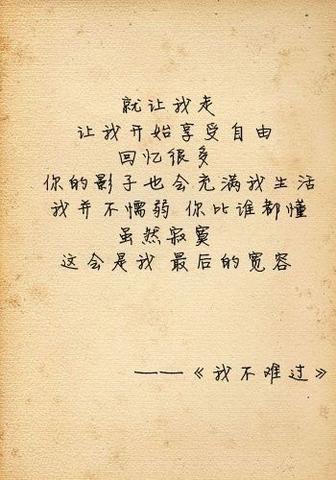 就让我走
让我开始享受自由
回忆很多
你的影子也会充满我生活
我并不懦弱 你比谁都懂
虽然寂寞
这会是我 最后的宽容
——《我不难过》